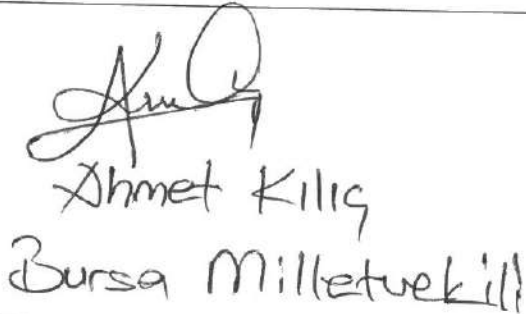 Ahmet Kılıç
Bursa Milletvekili